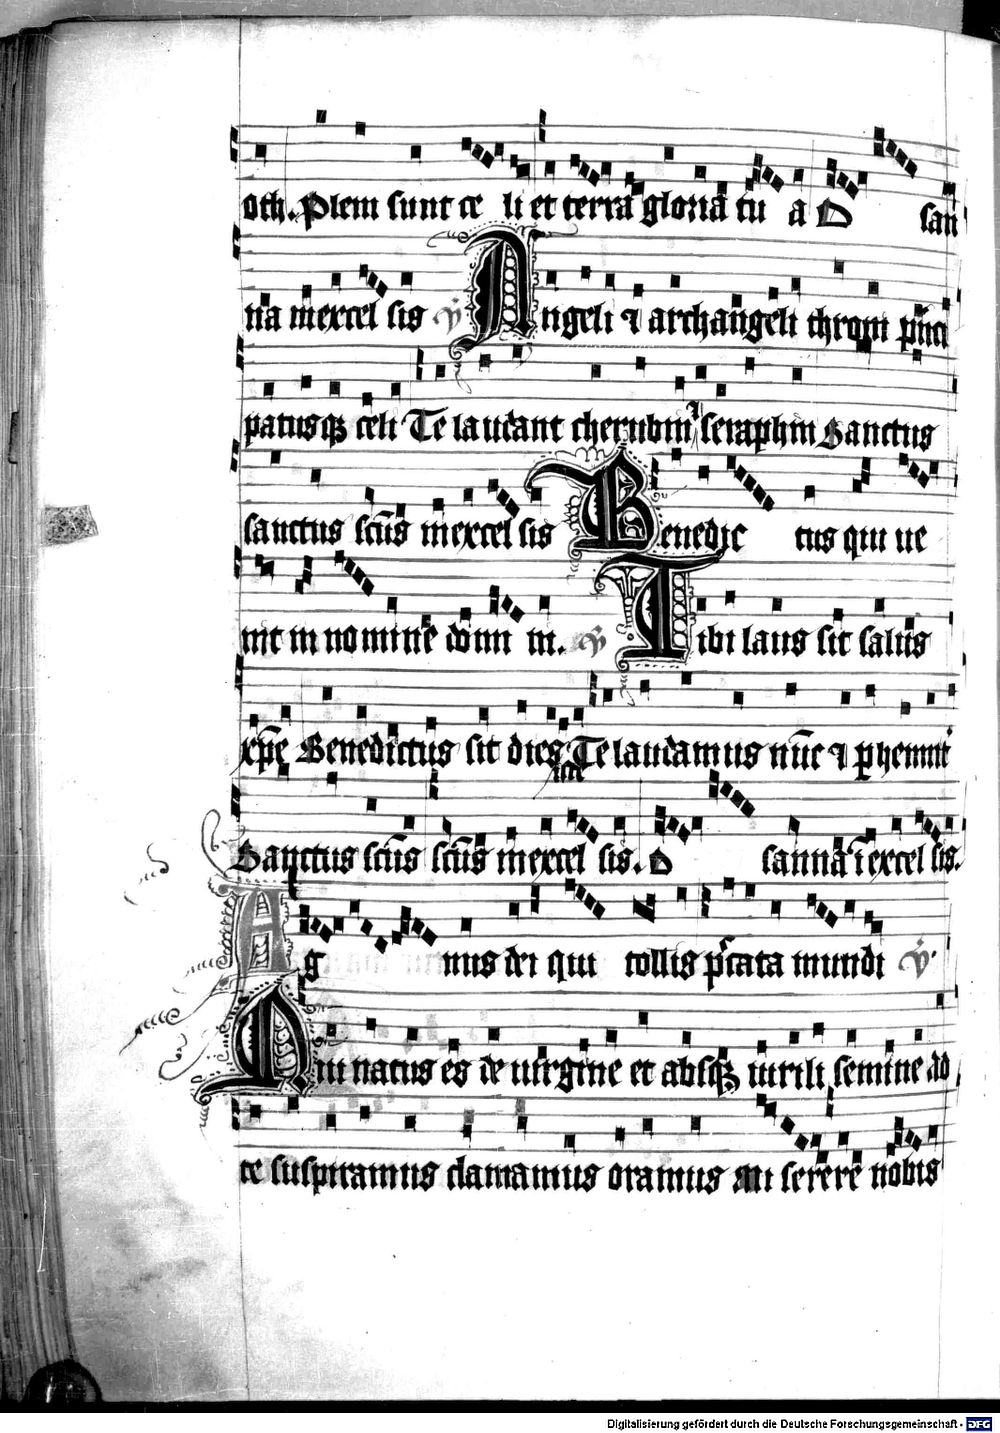 oth. Plem sunt ce li et terra gloria tu a O san
na in excel sis v̉ Angeli ⁊ archangeli throni p̃nci
patusqꝫ celi Te laudant cherubin ⁊ seraphin Sanctus
sanctus sc̃us in excel sis Benedic tus qui ue
nit in nomine domi ni. v̉ Tibi laus sit salus
xp̃e Benedictus sit dies iste Te laudamus nũc ⁊ ꝑhenniť
Sanctus sc̃us sc̃us in excel sis. O sanna ĩ excel sis.
Ag nus dei qui tollis p̃cata mundi v̉
Qui natus es de uirgine et absqꝫ uirili semine ad
te suspiramus clamamus oramus mi serere nobis
Digitalisierung gefördert durch die Deutsche Forschungsgemeinschaft - DFG